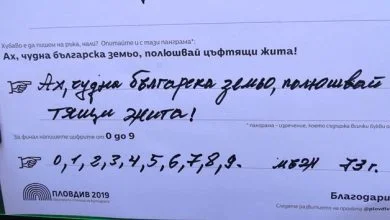 Хубаво е да пишем на ръка, нали? Опитайте и с тази панграма*:
Ах, чудна българска земьо, полюшвай цъфтящи жита!
Ах, чудна българска земьо, полюшвай
тящи жита!
* панграма - изречение, което съдържа всички букви о
За финал напишете цифрите от 0 до 9
0, 1, 2, 3, 4, 5, 6, 7, 8, 9. мъж 73 г.
ПЛОВДИВ 2019
Благодари
Следете развитието на проекта @plovdiv